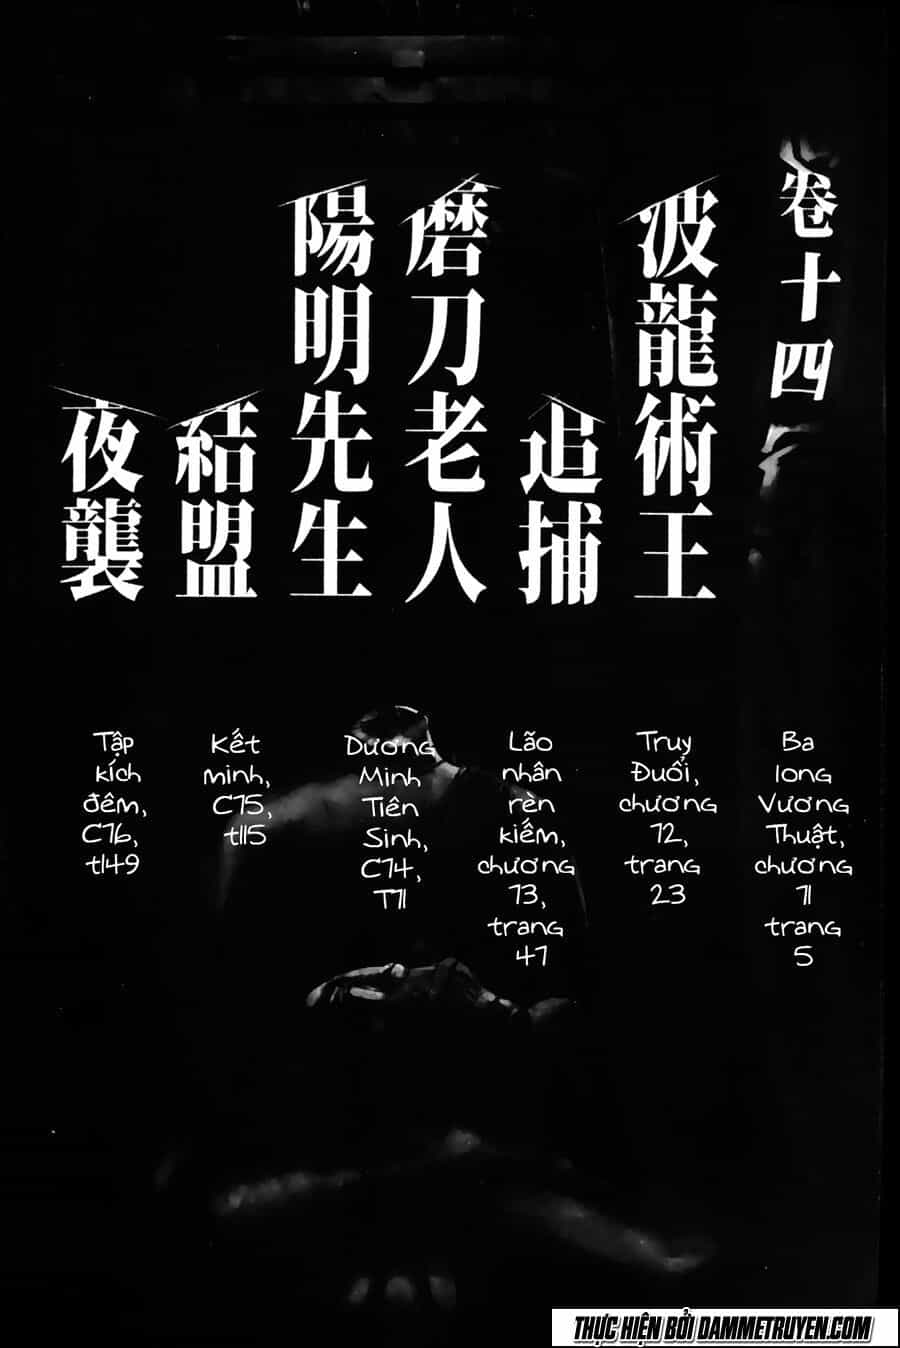 卷十四
波龍術王
追捕
磨刀老人
陽明先生
結盟
夜襲
Ba
long
Vương
Thuật,
chương
71
trang
5
Truy
Đuổi,
chương
72,
trang
23
Lão
nhân
rèn
kiếm,
chương
73,
trang
47
Dương
Minh
Tiên
Sinh,
C74,
T71
Kết
minh,
C75,
t115
Tập
kích
đêm,
C76,
t149
THỰC HIỆN BỞI DAMMETRUYEN.COM